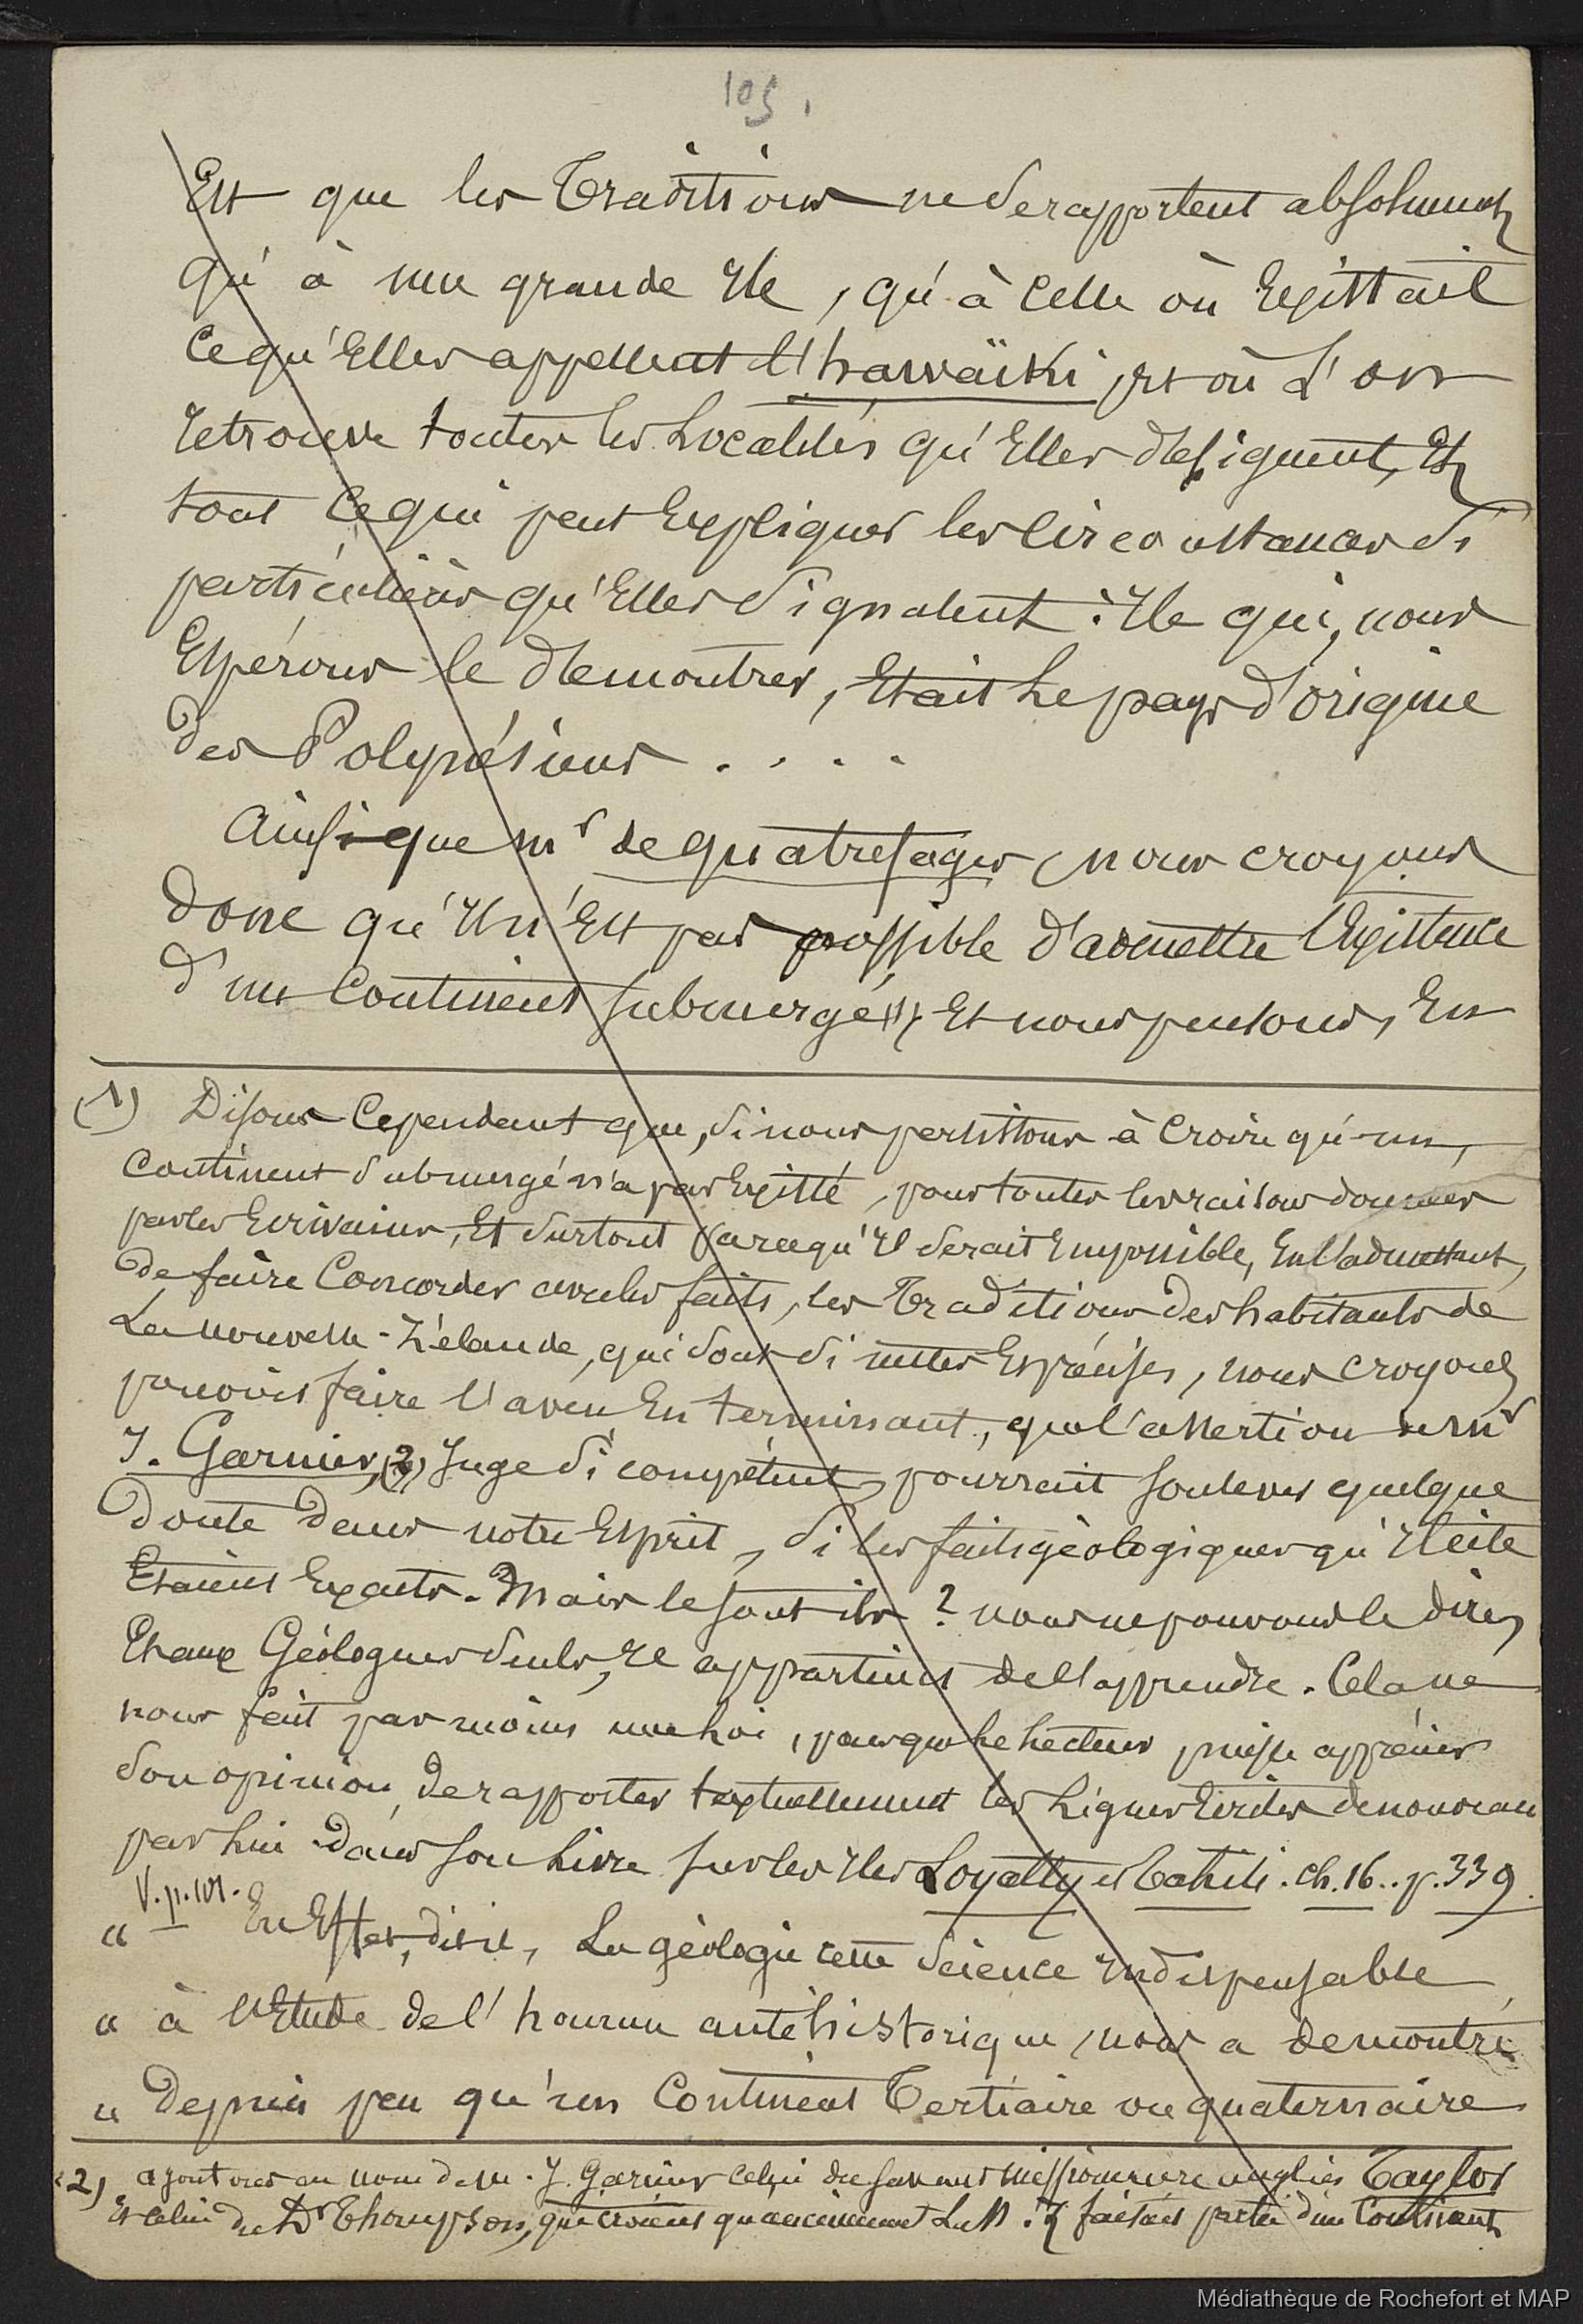 105.
Est que les Traditions ne se rapportent absolument
qu'à une grande Ile, qu'à celle où Existait
ce qu'Elles appellent l'hawaïki, et où l'on
retrouve toutes les Localités qu'Elles désignent, Et
tout ce qui peut Expliquer les circonstances si
particulières qu'Elles signalent : Ile qui, nous
Espérons le démontrer, Etait Le pays d'origine
des Polynésiens . . . .
Ainsi que Mr de Quatrefages, nous croyons
donc qu'Il n'Est pas possible d'admettre l'Existence
d'un Continent submergé (1) Et nous pensons, En
(1) Disons Cependant que, si nous persistons à Croire qu'un
Continent submergé n'a pas Existé, pour toutes les raisons données
par les Ecrivains, Et surtout parcequ'Il serait Impossible, En l'admettant,
de faire Concorder avec les faits, les Traditions des habitants de
La Nouvelle-Zélande, qui sont si nettes Et précises, nous croyons
pouvoir faire l'aveu En terminant, que l'assertion de Mr
J. Garnier, (2) Juge si compétent, pourrait soulever quelque
doute dans notre Esprit, si les faits géologiques qu'Il cite
Etaient Exacts. Mais le sont ils ? nous ne pouvons le dire,
Et aux Géologues seuls, Il appartient de l'apprendre. Cela ne
nous fait pas moins une Loi, pour que Le Lecteur puisse apprécier
son opinion, de rapporter textuellement les Lignes Ecrites de nouveau
par Lui dans son Livre sur les Iles Loyalty et Tahiti. ch. 16.. p. 339.
V. p. 101.
" En Effet, dit-il, La géologie cette science Indispensable
" à l'Etude de l'homme antéhistorique, nous a démontré
" depuis peu qu'un Continent Tertiaire ou quaternaire
(2) ajoutons au nom de M. J. Garnier celui du savant missionnaire anglais Taylor
Et celui du Dr Thompson, qui croient qu'anciennement La N. Z faisait partie d'un Continent
Médiathèque de Rochefort et MAP